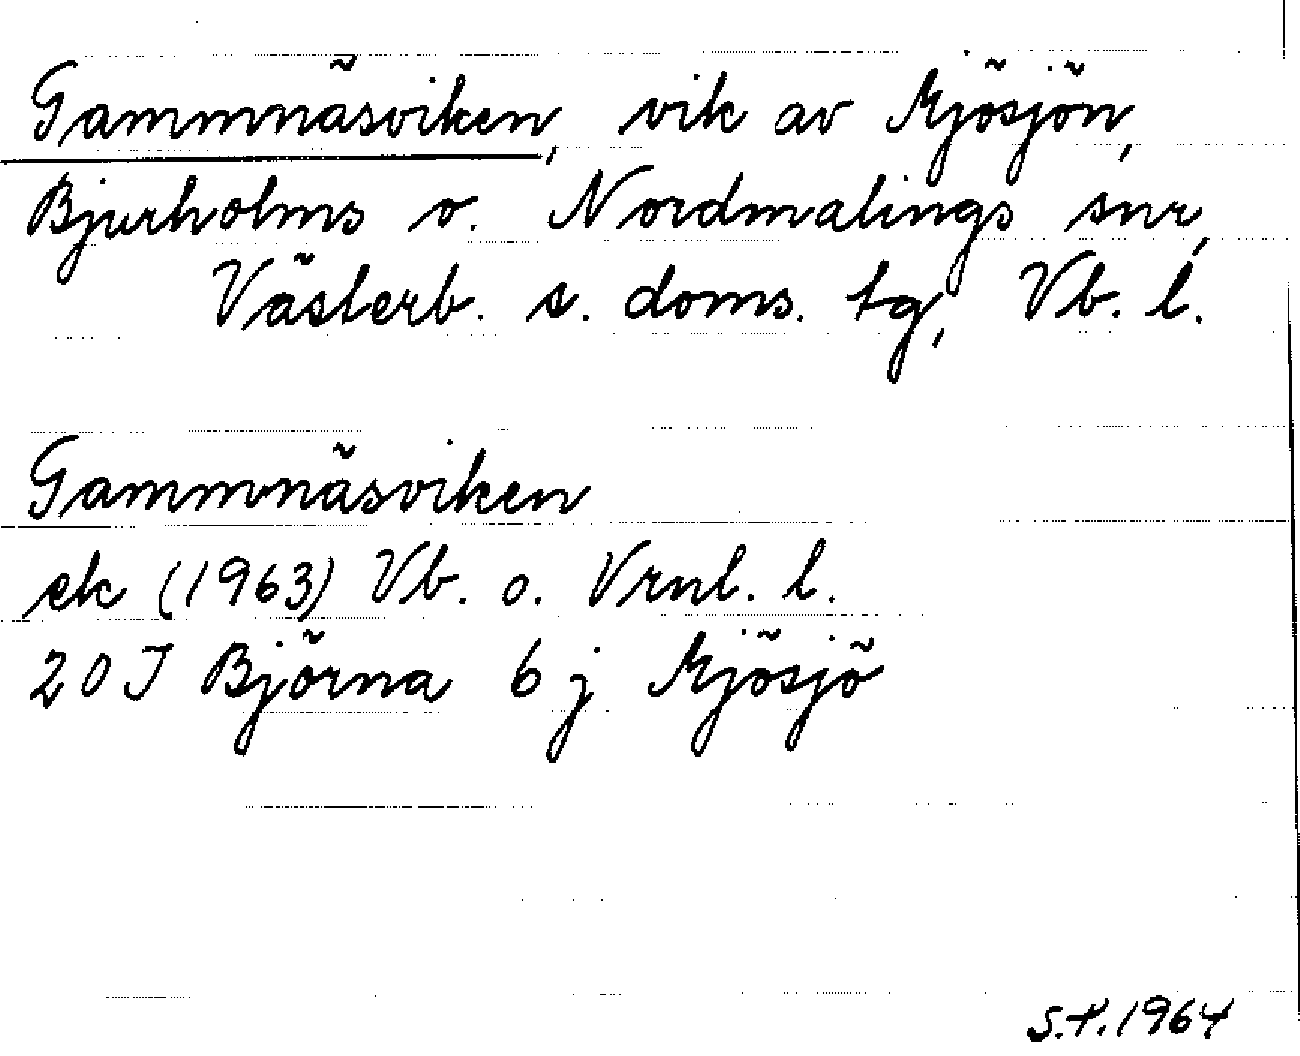 Gammnäsviken, vik av Mjösjön,
Bjurholms o. Nordmalings snr,
Västerb. s. doms. tg, Vb. l.
Gammnäsviken
ek (1963) Vb. o. Vrnl. l.
20 J Björna 6 j Mjösjö
S.H. 1964